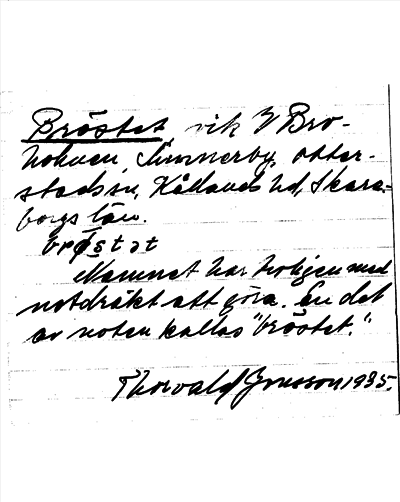 Bröstet, vik V Bro-
holmen, Simmerby, Otter-
stads sn, Kållands hd, Skara-
borgs län.
brøstət
Namnet har troligen med
notdräkt att göra. En del
av noten kallas "bröstet."
Thorvald Jonsson 1935.